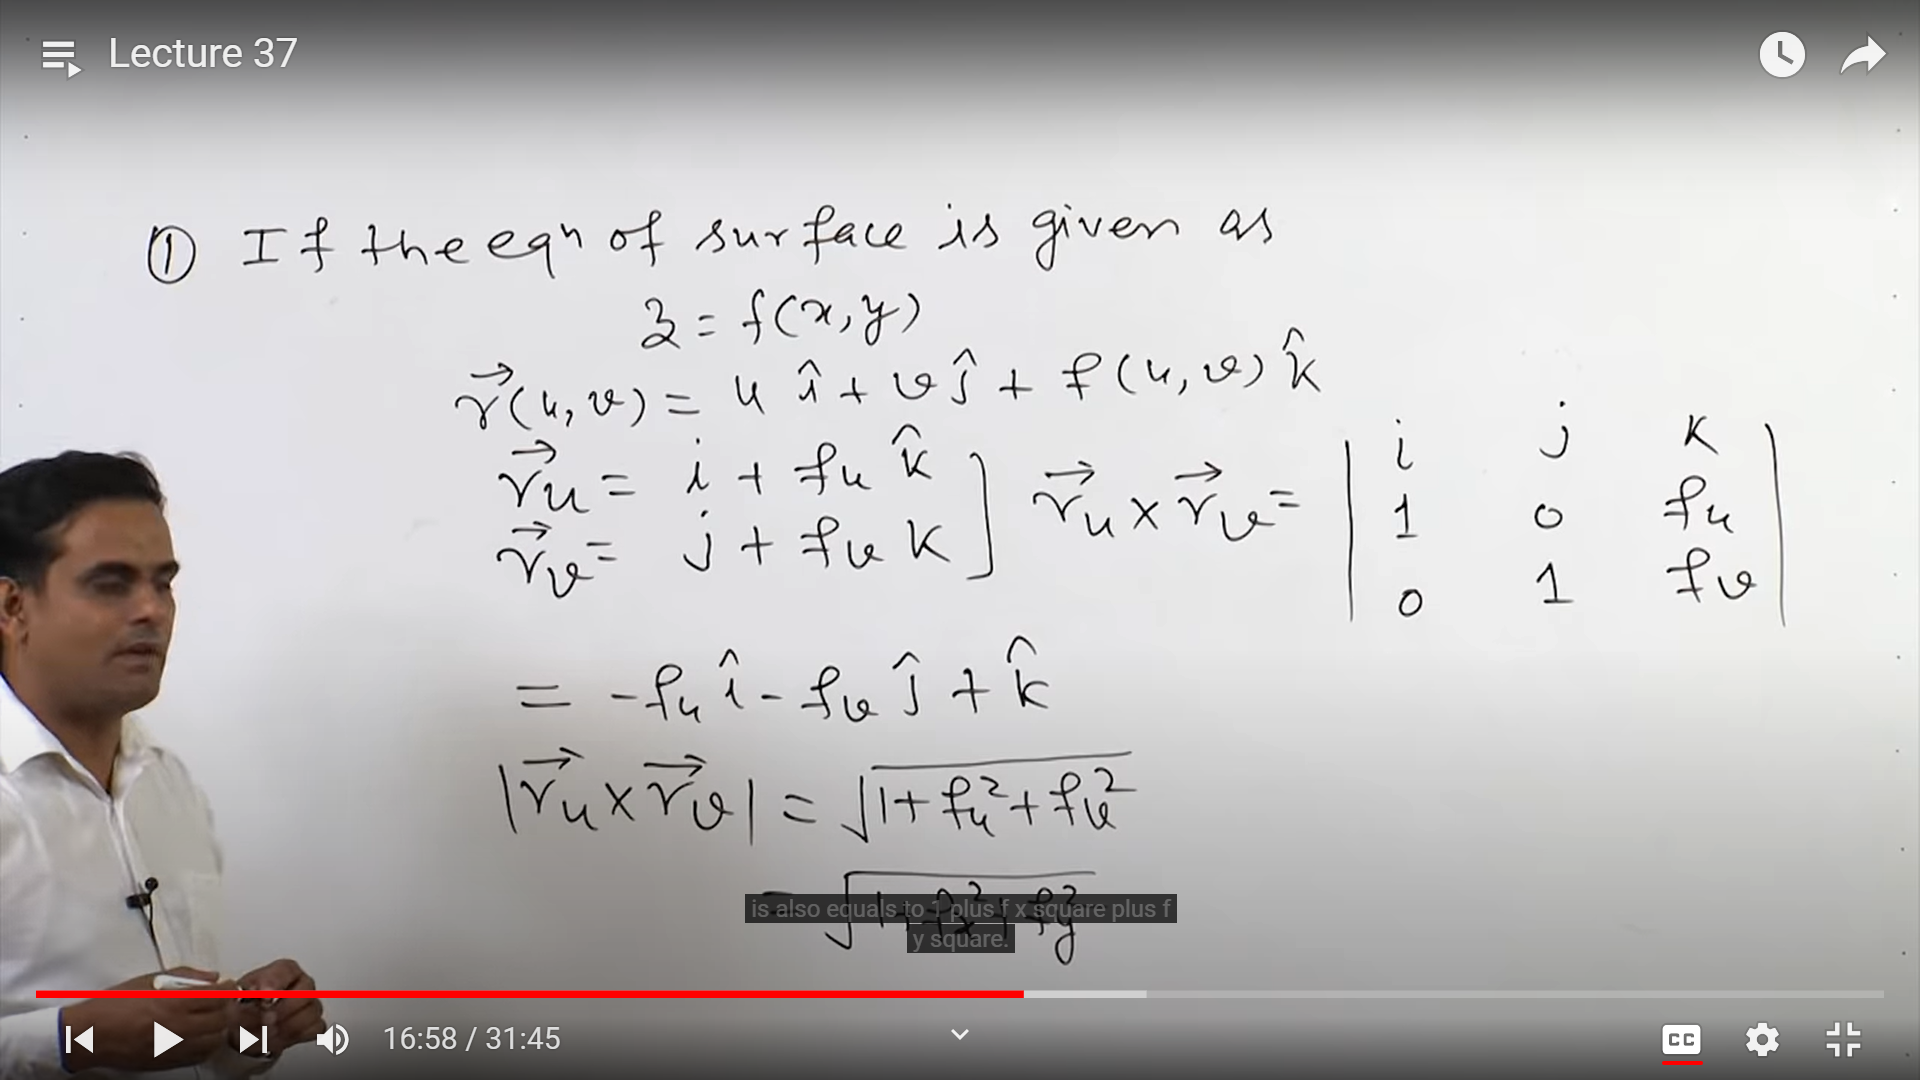 Lecture 37
① If the eqⁿ of surface is given as
z = f(x,y)
r⃗(u,v) = u î + v ĵ + f(u,v) k̂
r⃗u = i + fu k̂
r⃗v = j + fv k
r⃗u × r⃗v =
i j k
1 0 fu
0 1 fv
= -fu î - fv ĵ + k̂
|r⃗u × r⃗v| = √(1+fu²+fv²)
= √(1+fx²+fy²)
is also equals to 1 plus f x square plus f
y square.
16:58 / 31:45
CC